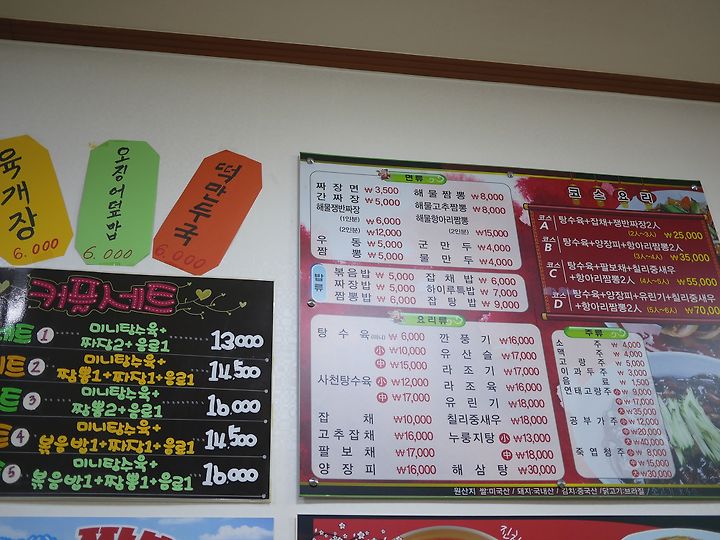 육개장
6.000
오징어덮밥
6.000
떡만두국
6.000
커플세트
세트 1 미니탕수육+
짜장2+음료1 13000
세트 2 미니탕수육+
짬뽕1+짜장1+음료1 14500
세트 3 미니탕수육+
짬뽕2+음료1 16000
세트 4 미니탕수육+
볶음밥1+짜장1+음료1 14500
5 미니탕수육+
볶음밥1+짬뽕1+음료1 16000
면류
짜장면 ₩3,500
간짜장 ₩5,000
해물쟁반짜장
(1인분) ₩6,000
(2인분) ₩12,000
우동 ₩5,000
짬뽕 ₩4,000
해물짬뽕 ₩8,000
해물고추짬뽕 ₩8,000
해물항아리짬뽕
(2인분) ₩15,000
군만두 ₩4,000
물만두 ₩4,000
밥류
볶음밥 ₩5,000
짜장밥 ₩5,000
짬뽕밥 ₩6,000
잡채밥 ₩6,000
하이루특밥 ₩7,000
잡탕밥 ₩9,000
요리류
탕수육 ₩6,000
小 ₩10,000
中 ₩15,000
사천탕수육 小 ₩12,000
中 ₩17,000
잡채 ₩10,000
고추잡채 ₩16,000
팔보채 ₩17,000
양장피 ₩16,000
깐풍기 ₩16,000
유산슬 ₩17,000
라조기 ₩17,000
라조육 ₩16,000
유린기 ₩18,000
칠리중새우 ₩18,000
누룽지탕 小 ₩13,000
中 ₩18,000
해삼탕 ₩30,000
코스요리
코스 A 탕수육+잡채+쟁반짜장2인
(2인~3인) ₩25,000
코스 B 탕수육+양장피+항아리짬뽕2인
(3인~4인) ₩35,000
코스 C 탕수육+팔보채+칠리중새우
+항아리짬뽕2인 (4인~5인) ₩55,000
코스 D 탕수육+양장피+유린기+칠리중새우
+항아리짬뽕2인 (5인~6인) ₩70,00
주류
소주 ₩4,000
맥주 ₩4,000
고량주 ₩5,000
이과두주 ₩3,000
음료 ₩1,500
연태고량주 小 ₩8,000
中 ₩17,000
大 ₩35,000
공부가주 小 ₩12,000
中 ₩20,000
大 ₩40,000
죽엽청주 小 ₩8,000
中 ₩15,000
大 ₩30,000
원산지 쌀:미국산 / 돼지:국내산 / 김치:중국산 /닭고기:브라질